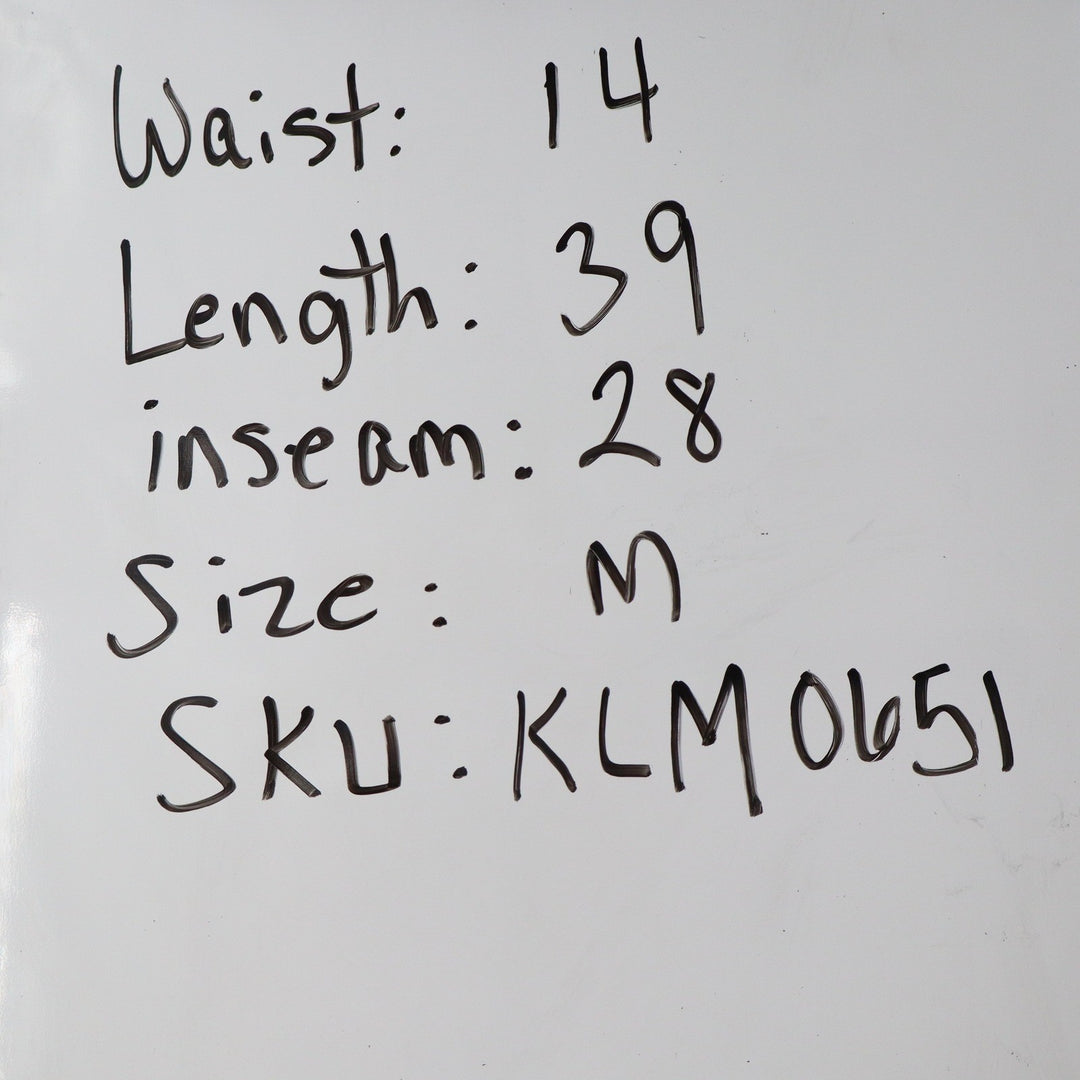 Waist: 14
Length: 39
inseam: 28
Size: M
SKU: KLM0651